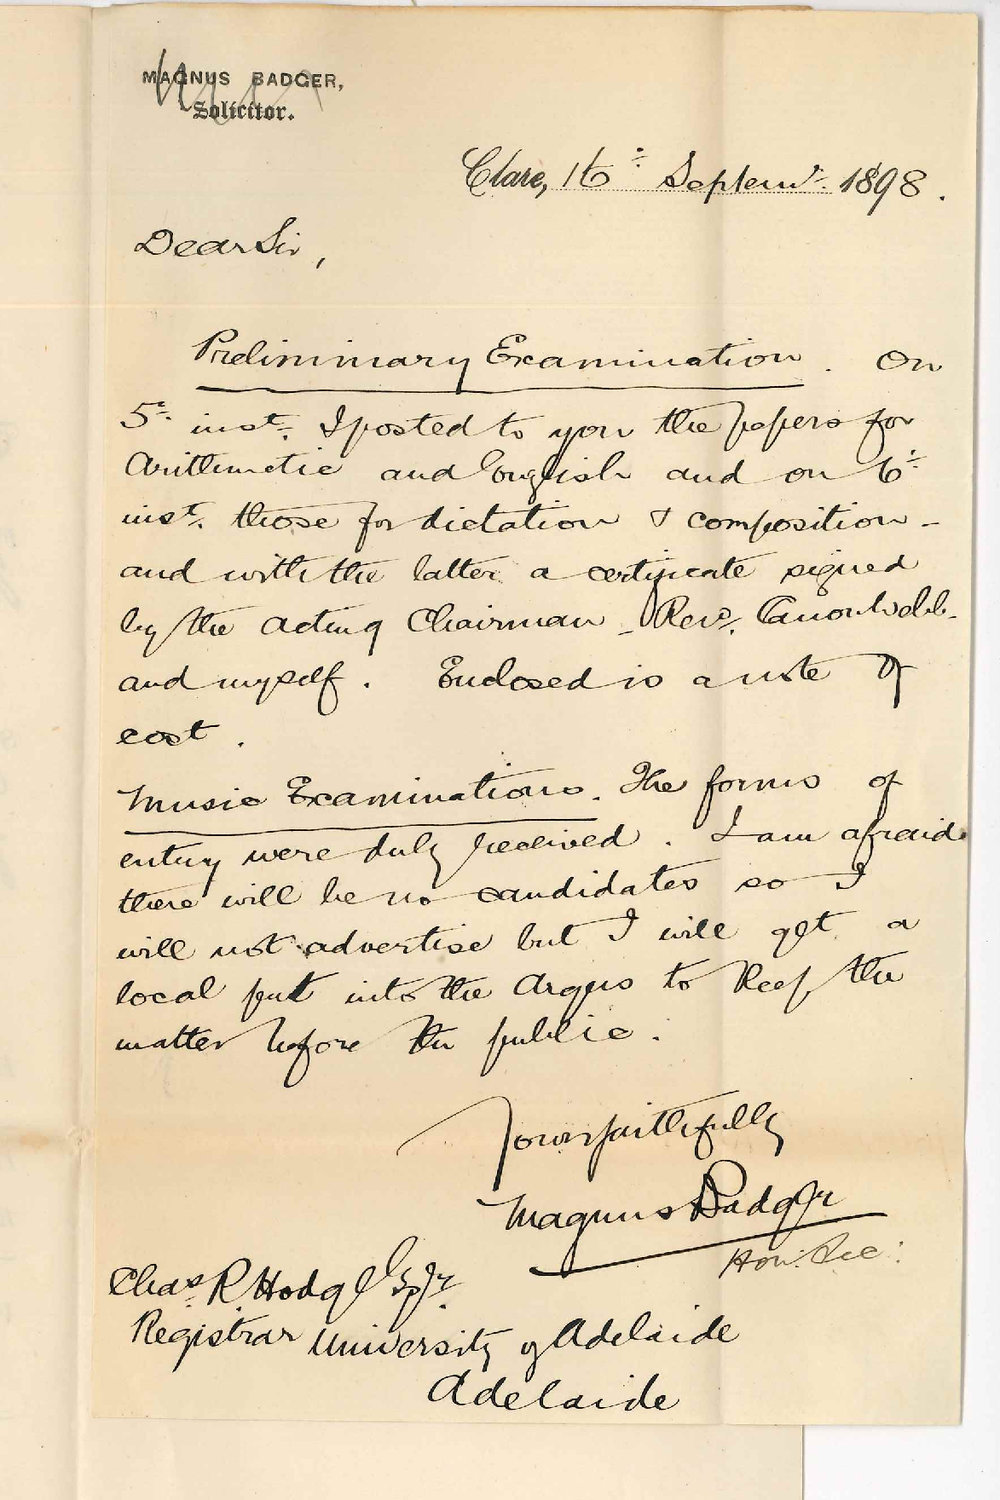 MAGNUS BADGER,
Solicitor.
Clare, 16th Septemr. 1898.
Dear Sir,
Preliminary Examination. On
5th inst. I posted to you the papers for
Arithmetic and English and on 6th
inst. those for dictation & composition -
and with the latter a certificate signed
by the acting Chairman - Revd. Canon Webb -
and myself. Enclosed is a note of
cost.
Music Examinations. The forms of
entry were duly received. I am afraid
there will be no candidates so I
will not advertise but I will get a
local put into the Argus to keep the
matter before the public.
Yours faithfully
Magnus Badger
Hon. Sec.
Chas. R Hodge Esqr.
Registrar University of Adelaide
Adelaide